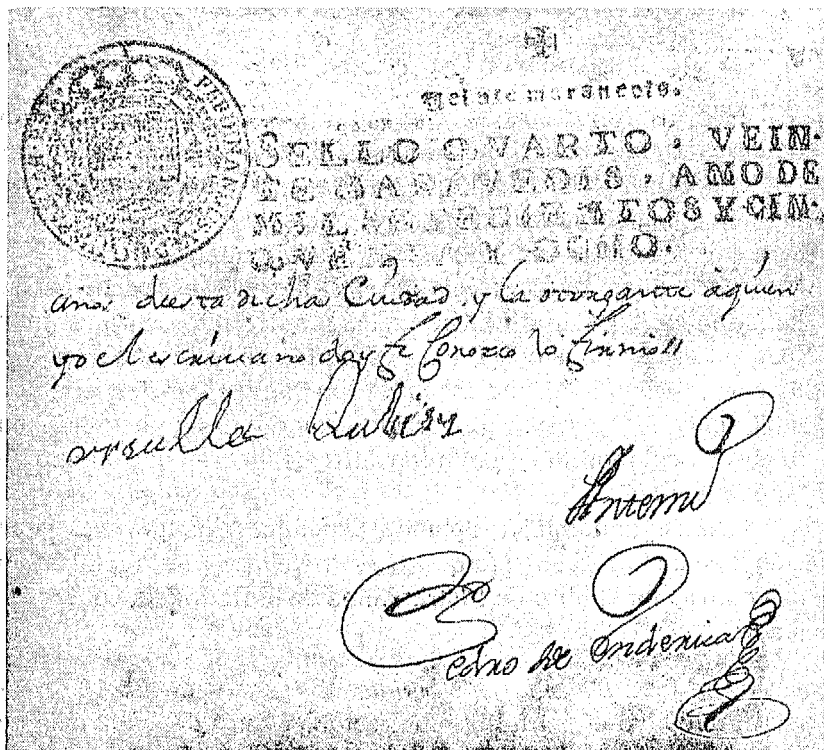 Veinte maravedis.
SELLO QVARTO, VEIN-
TE MARAVEDIS, AÑO DE
MIL SETECIENTOS Y CIN-
QVENTA Y OCHO.
desta dicha Ciudad, y la otorgante aquien
yo el escrivano doy fe Conozco lo firmo
vrsulla Rubira
Antemi
Pedro de